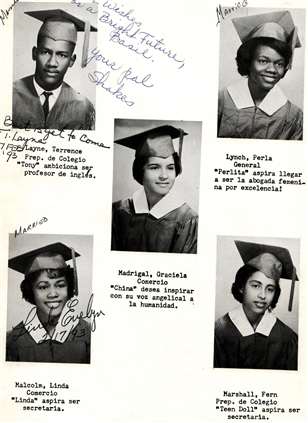 Married
Wishes
a Bright Future,
your pal
Shakes
Best is yet to come
T. Layne
Layne, Terrence
Prep. de Colegio
"Tony" ambiciona ser
profesor de inglés.
Lynch, Perla
General
"Perlita" aspira llegar
a ser la abogada femeni-
na por excelencia!
Madrigal, Graciela
Comercio
"China" desea inspirar
con su voz angelical a
la humanidad.
MARRIED
Linda Evelyn
2/17/93
Malcolm, Linda
Comercio
"Linda" aspira ser
secretaria.
Marshall, Fern
Prep. de Colegio
"Teen Doll" aspira ser
secretaria.